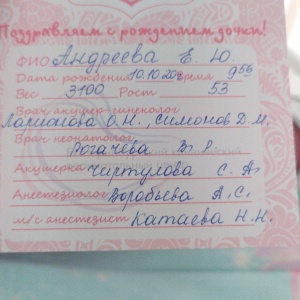 Поздравляем с рождением дочки!
ФИО Андреева Е. Ю.
Дата рождения 10.10.20 время 9 56
Вес 3100 Рост 53
Врач акушер-гинеколог
О.Н., Симонов Д.И.
Врач неонатолог
Рогачева В.
Акушерка Чиртулова С. А.
Анестезиолог Воробьева А.С.
м/с анестезист Катаева Н.Н.